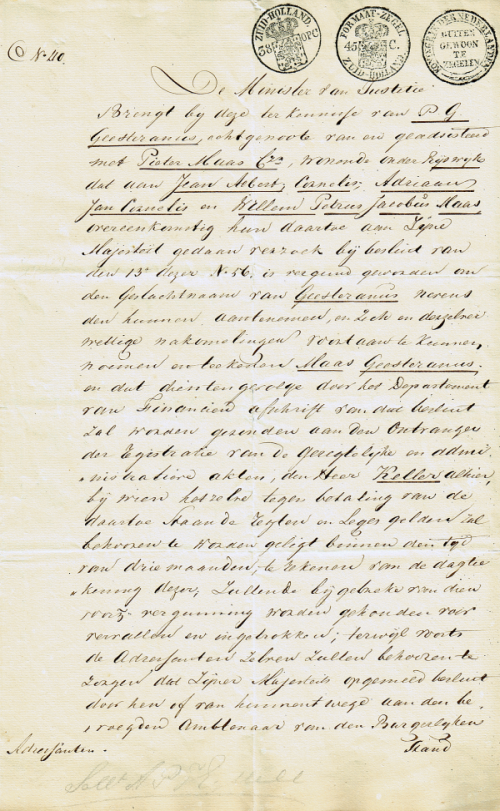 ZUID-HOLLAND.
38 OPC
FORMAAT-ZEGEL
45 C.
ZUID-HOLLAND
BUITEN
GEWOON
TE
ZEGELEN
N. 40.
De Minister van Justitie
Brengt by deze ter kennisse van P G
Geesteranus, echtgenoote van en geadsisteerd
met Pieter Maas Czn, wonende onder Ryswyk
dat aan Jean Albert, Cornelis, Adriaan
Jan Cornelis en Willem Petrus Jacobus Maas
overeenkomstig hun daartoe aan Zyne
Majesteit gedaan verzoek bij besluit van
den 13e dezer No 56, is vergund geworden om
den Geslachtnaam van Geesteranus nevens
den hunnen aantenemen, en Zich en derzelver
wettige nakomelingen voortaan te kunnen
noemen en teekenen Maas Geesteranus.
en dat dientengevolge door het Departement
van Financien afschrift van dat besluit
zal worden gezonden aan den Ontvanger
der Registratie van de Geregtelyke en admi
nistrative akten, den Heer Keller alhier,
bij wien hetzelve tegen betaling van de
daartoe staande Zegten en Leges gelden zal
behooren te worden geligt binnen den tyd
van drie maanden, te rekenen van de dagtee
kening dezer, Zullende bij gebreke van dien
voorz. vergunning worden gehouden voor
vervallen en ingetrokken; terwijl voorts
de Adressanten Zelven Zullen behooren te
Zorgen dat Zijner Majesteits opgemeld besluit
door hen of van hunnent wege aan den be
voegden Ambtenaar van den Burgerlyken
Adressanten. Stand